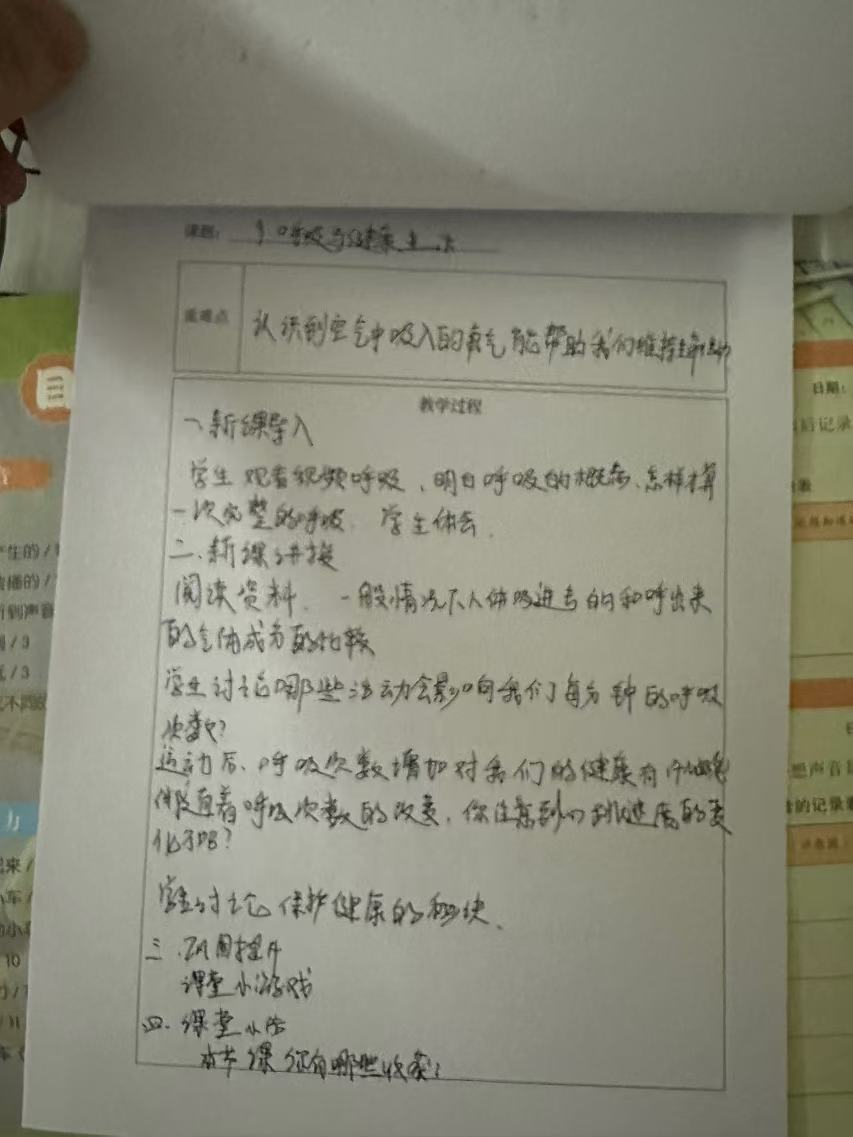 课题: 呼吸与健康生活
重难点
认识到空气中吸入的氧气能帮助我们维持生命活动
教学过程
一、新课导入
学生观看视频呼吸,明白呼吸的概念、怎样算
一次完整的呼吸. 学生体会.
二、新课讲授
阅读资料. 一般情况下人体吸进去的和呼出来
的气体成分的比较
学生讨论哪些活动会影响我们每分钟的呼吸
次数?
运动后、呼吸次数增加对我们的健康有什么
伴随着呼吸次数的改变,你注意到心跳速度的变
化了吗?
学生讨论保护健康的秘诀.
三.巩固提升
课堂小游戏
四.课堂小结
本节课你有哪些收获?
目
产生的/
播的/
听到声音
/3
/3
力
起来/
小车/
的小
10
/11
车
日期:
后记录
想声音
的记录